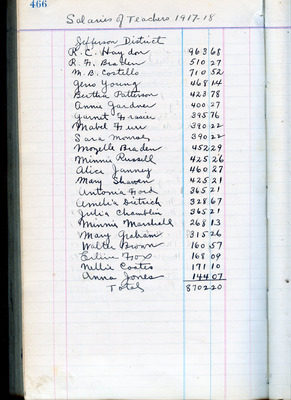 466
Salaries of Teachers 1917-18
Jefferson District
R. C. Haydon 963 68
R. H. Braden 510 27
M. B. Costello 710 52
Gene Young 468 14
Bertha Patterson 423 78
Annie Gardner 400 27
Garnet Frasier 395 76
Mabel Furr 390 22
Sara Monroe 390 22
Mozelle Braden 452 29
Minnie Russell 425 26
Alice Janney 460 27
Mary Shawen 425 21
Antonia Ford 365 21
Amelia Ditrich 328 67
Julia Chamblin 365 21
Minnie Marshall 268 13
Mary Graham 315 26
Walter Brown 160 57
Fox 168 09
Nellie Coates 171 10
Anna Jones 144 07
Total 8702 20